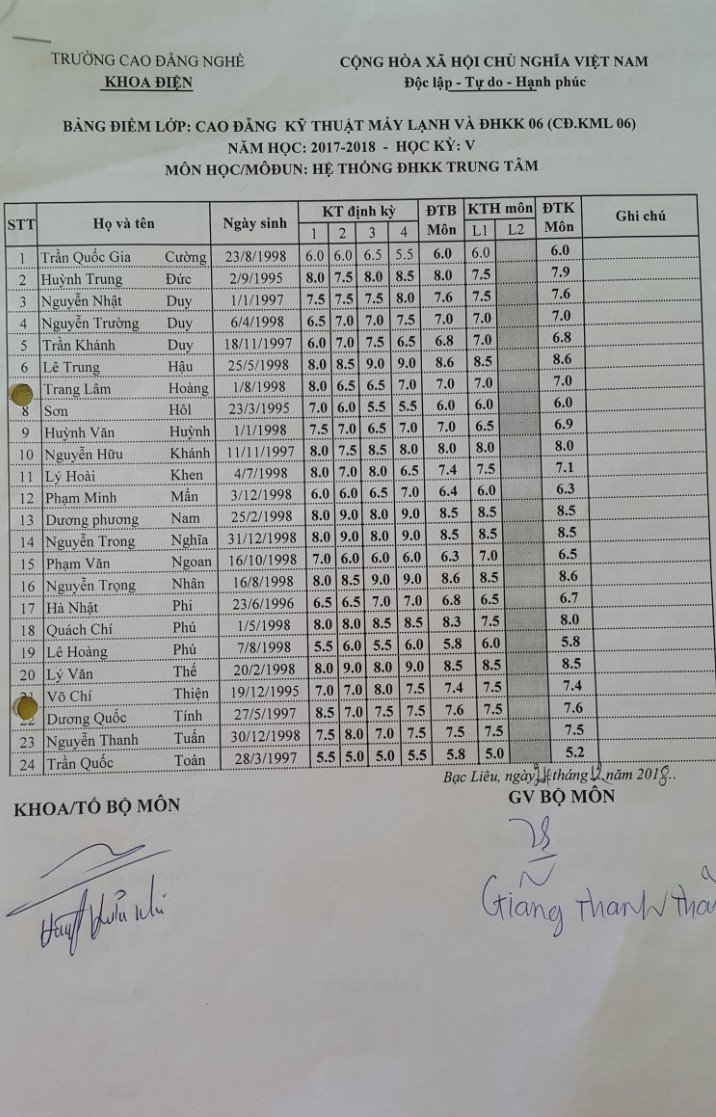 TRƯỜNG CAO ĐẲNG NGHỀ CỘNG HÒA XÃ HỘI CHỦ NGHĨA VIỆT NAM
KHOA ĐIỆN Độc lập - Tự do - Hạnh phúc
BẢNG ĐIỂM LỚP: CAO ĐẲNG KỸ THUẬT MÁY LẠNH VÀ ĐHKK 06 (CĐ.KML 06)
NĂM HỌC: 2017-2018 - HỌC KỲ: V
MÔN HỌC/MÔĐUN: HỆ THỐNG ĐHKK TRUNG TÂM
STT Họ và tên Ngày sinh KT định kỳ ĐTB Môn KTH môn ĐTK Môn Ghi chú
1 2 3 4 L1 L2
1 Trần Quốc Gia Cường 23/8/1998 6.0 6.0 6.5 5.5 6.0 6.0 6.0
2 Huỳnh Trung Đức 2/9/1995 8.0 7.5 8.0 8.5 8.0 7.5 7.9
3 Nguyễn Nhật Duy 1/1/1997 7.5 7.5 7.5 8.0 7.6 7.5 7.6
4 Nguyễn Trường Duy 6/4/1998 6.5 7.0 7.0 7.5 7.0 7.0 7.0
5 Trần Khánh Duy 18/11/1997 6.0 7.0 7.5 6.5 6.8 7.0 6.8
6 Lê Trung Hậu 25/5/1998 8.0 8.5 9.0 9.0 8.6 8.5 8.6
Trang Lâm Hoàng 1/8/1998 8.0 6.5 6.5 7.0 7.0 7.0 7.0
8 Sơn Hôl 23/3/1995 7.0 6.0 5.5 5.5 6.0 6.0 6.0
9 Huỳnh Văn Huỳnh 1/1/1998 7.5 7.0 6.5 7.0 7.0 6.5 6.9
10 Nguyễn Hữu Khánh 11/11/1997 8.0 7.5 8.5 8.0 8.0 8.0 8.0
11 Lý Hoài Khen 4/7/1998 8.0 7.0 8.0 6.5 7.4 7.5 7.1
12 Phạm Minh Mẫn 3/12/1998 6.0 6.0 6.5 7.0 6.4 6.0 6.3
13 Dương phương Nam 25/2/1998 8.0 9.0 8.0 9.0 8.5 8.5 8.5
14 Nguyễn Trong Nghĩa 31/12/1998 8.0 9.0 8.0 9.0 8.5 8.5 8.5
15 Phạm Văn Ngoan 16/10/1998 7.0 6.0 6.0 6.0 6.3 7.0 6.5
16 Nguyễn Trọng Nhân 16/8/1998 8.0 8.5 9.0 9.0 8.6 8.5 8.6
17 Hà Nhật Phi 23/6/1996 6.5 6.5 7.0 7.0 6.8 6.5 6.7
18 Quách Chí Phú 1/5/1998 8.0 8.0 8.5 8.5 8.3 7.5 8.0
19 Lê Hoàng Phú 7/8/1998 5.5 6.0 5.5 6.0 5.8 6.0 5.8
20 Lý Văn Thế 20/2/1998 8.0 9.0 8.0 9.0 8.5 8.5 8.5
21 Võ Chí Thiện 19/12/1995 7.0 7.0 8.0 7.5 7.4 7.5 7.4
22 Dương Quốc Tính 27/5/1997 8.5 7.0 7.5 7.5 7.6 7.5 7.6
23 Nguyễn Thanh Tuấn 30/12/1998 7.5 8.0 7.0 7.5 7.5 7.5 7.5
24 Trần Quốc Toản 28/3/1997 5.5 5.0 5.0 5.5 5.8 5.0 5.2
Bạc Liêu, ngày tháng 12 năm 2018..
KHOA/TỔ BỘ MÔN GV BỘ MÔN
Giang Thanh